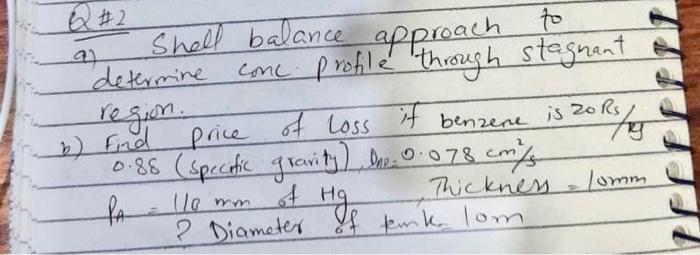 Q #2
a) Shell balance approach to
determine conc. profile through stagnant
region.
b) Find price of loss if benzene is 20 Rs/kg
0.88 (specific gravity), D = 0.078 cm²/s
PA = 110 mm of Hg, Thickness = 10mm
? Diameter of tank 10m